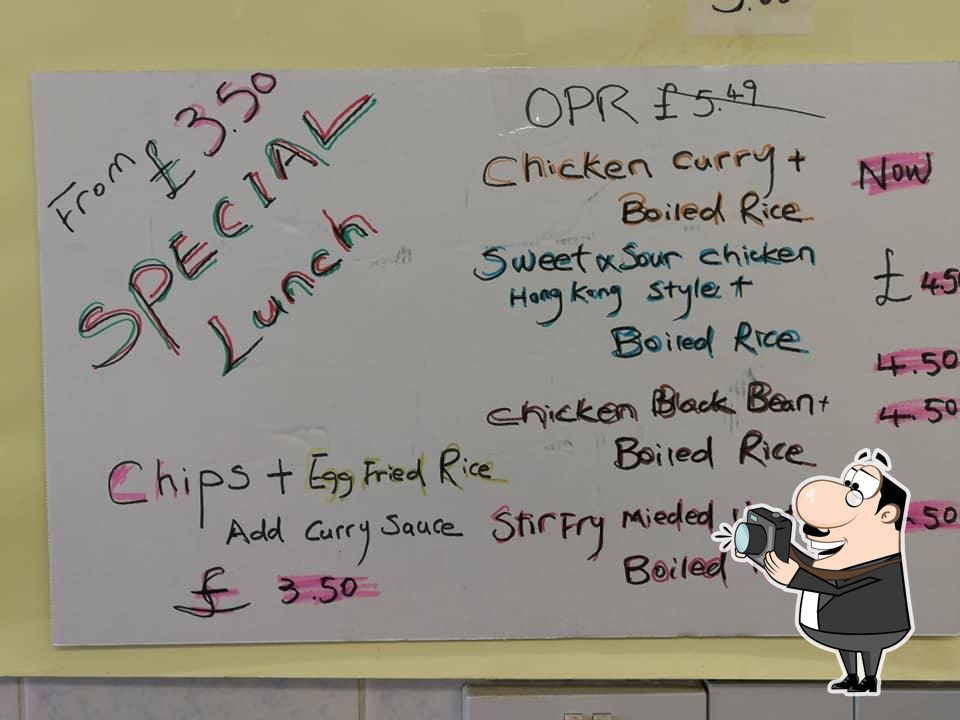 From £ 3.50
SPECIAL
Lunch
OPR £5.49
Chicken Curry +
Boiled Rice
Now
Sweet & Sour chicken
Hong Kong Style +
Boiled Rice
£ 4.50
4.50
Chicken Black Bean +
Boiled Rice
4.50
Chips + Egg Fried Rice
Add Curry Sauce
£ 3.50
Stir Fry Mieded
Boiled
.50